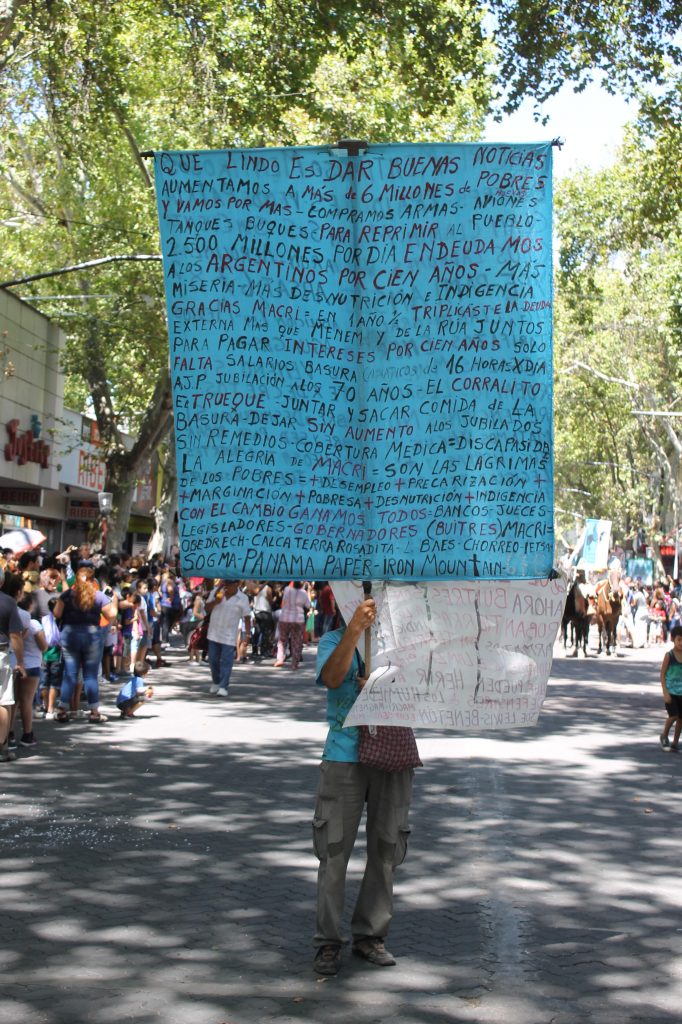 QUE LINDO ES DAR BUENAS NOTICIAS
AUMENTAMOS A MÁS de 6 MILLONES de POBRES
Y VAMOS POR MAS - COMPRAMOS ARMAS - AVIONES
TANQUES BUQUES - PARA REPRIMIR AL PUEBLO -
2.500 MILLONES POR DÍA ENDEUDAMOS
A LOS ARGENTINOS POR CIEN AÑOS - MÁS
MISERIA - MÁS DESNUTRICIÓN E INDIGENCIA
GRACIAS MACRI = EN 1 AÑO ½ TRIPLICASTE LA DEUDA
EXTERNA MAS QUE MENEM Y DE LA RÚA JUNTOS
PARA PAGAR INTERESES POR CIEN AÑOS SOLO
FALTA SALARIOS BASURA de 16 HORAS X DIA
A.J.P JUBILACIÓN A LOS 70 AÑOS - EL CORRALITO
EL TRUEQUE JUNTAR Y SACAR COMIDA de LA
BASURA - DEJAR SIN AUMENTO A LOS JUBILADOS
SIN REMEDIOS - COBERTURA MEDICA = DISCAPASIDA
LA ALEGRIA de MACRI = SON LAS LÁGRIMAS
DE LOS POBRES = + DESEMPLEO + PRECARIZACIÓN +
+ MARGINACIÓN + POBRESA + DESNUTRICIÓN + INDIGENCIA
CON EL CAMBIO GANAMOS TODOS = BANCOS - JUECES
LEGISLADORES - GOBERNADORES (BUITRES) MACRI =
OBEDRECH - CALCATERRA ROSADITA - L BAES - CHORREO
SOGMA - PANAMA PAPER - IRON MOUNTAIN
AHORA BUITRES
PUEDEN
LEWIS - BENETTON
RIBEIRO